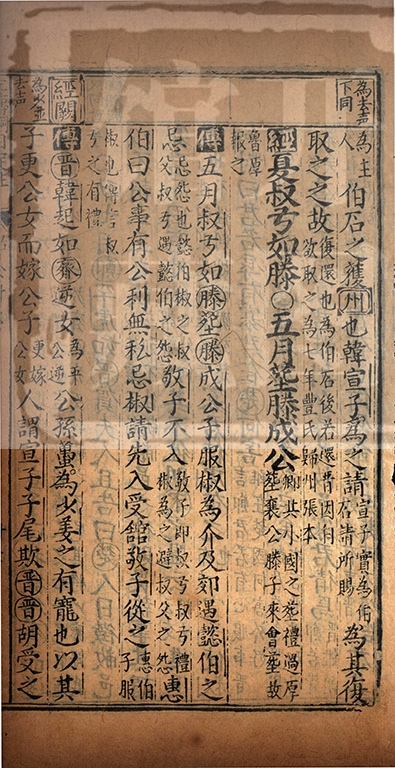 為去聲
下同
為主
人
伯石之獲州也韓宣子為之請宣子實為伯石請所賜為其復
取之之故復還也為伯石後若還晉因自欲取之為七年豐氏歸州張本
經夏叔弓如滕○五月葬滕成公卿共小國之葬禮過厚葬襄公滕子來會葬故
魯厚報之
傳五月叔弓如滕葬滕成公子服椒為介及郊遇懿伯之
忌忌怨也懿伯椒之叔父敬子不入敬子即叔弓叔弓禮椒為之避惠
伯曰公事有公利無私忌椒請先入受館敬子從之惠伯子服
椒也傳言叔弓之有禮
經闕
為少並去声
傳晉韓起如齊逆女為平公逆公孫蠆為少姜之有寵也以其
子更公女而嫁公子更嫁公女人謂宣子子尾欺晉晉胡受之